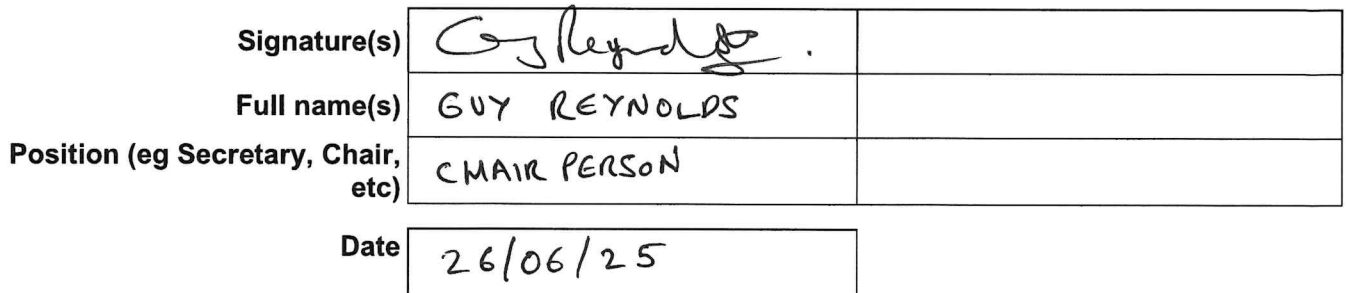 Signature(s) Guy Reynolds
Full name(s) GUY REYNOLDS
Position (eg Secretary, Chair,
etc) CHAIR PERSON
Date 26/06/25